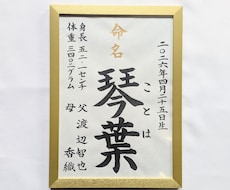 命名
二〇二六年四月二十五日生
琴葉
ことは
身長 五二一センチ
体重 三四〇二グラム
父 渡辺智也
母 香織